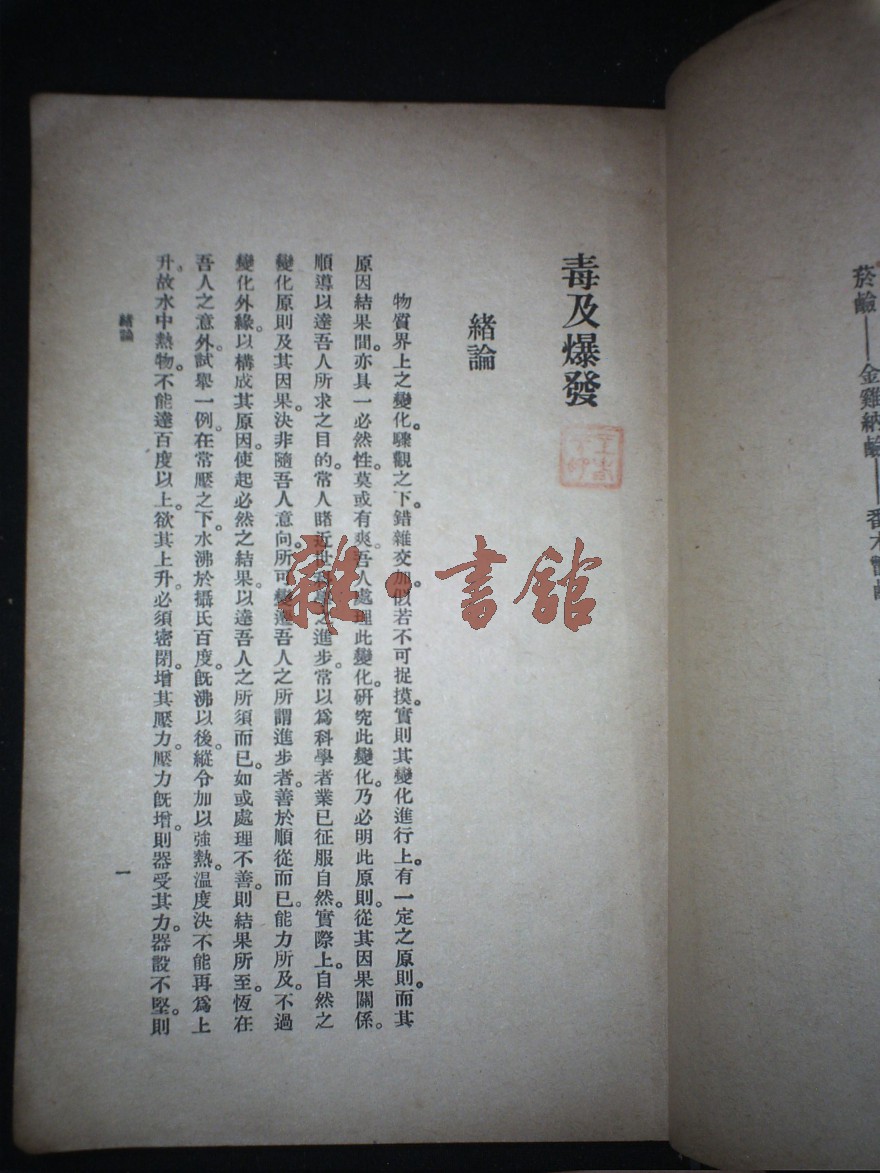 菸鹼——金雞納鹼——番木
毒及爆發
緒論
物質界上之變化。驟觀之下。錯雜交加。似若不可捉摸。實則其變化進行上。有一定之原則。而其
原因結果間。亦具一必然性。莫或有爽。吾人處理此變化。研究此變化。乃必明此原則。從其因果關係。
順導以達吾人所求之目的。常人睹近世科學之進步。常以爲科學者業已征服自然。實際上。自然之
變化原則及其因果。決非隨吾人意向。所可變遷。吾人之所謂進步者。善於順從而已。能力所及。不過
變化外緣。以構成其原因。使起必然之結果。以達吾人之所須而已。如或處理不善。則結果所至。恆在
吾人之意外。試舉一例。在常壓之下。水沸於攝氏百度。旣沸以後。縱令加以強熱。温度決不能再爲上
升。故水中熱物。不能達百度以上。欲其上升。必須密閉。增其壓力。壓力旣增。則器受其力。器設不堅。則
緒論
一
雜·書館